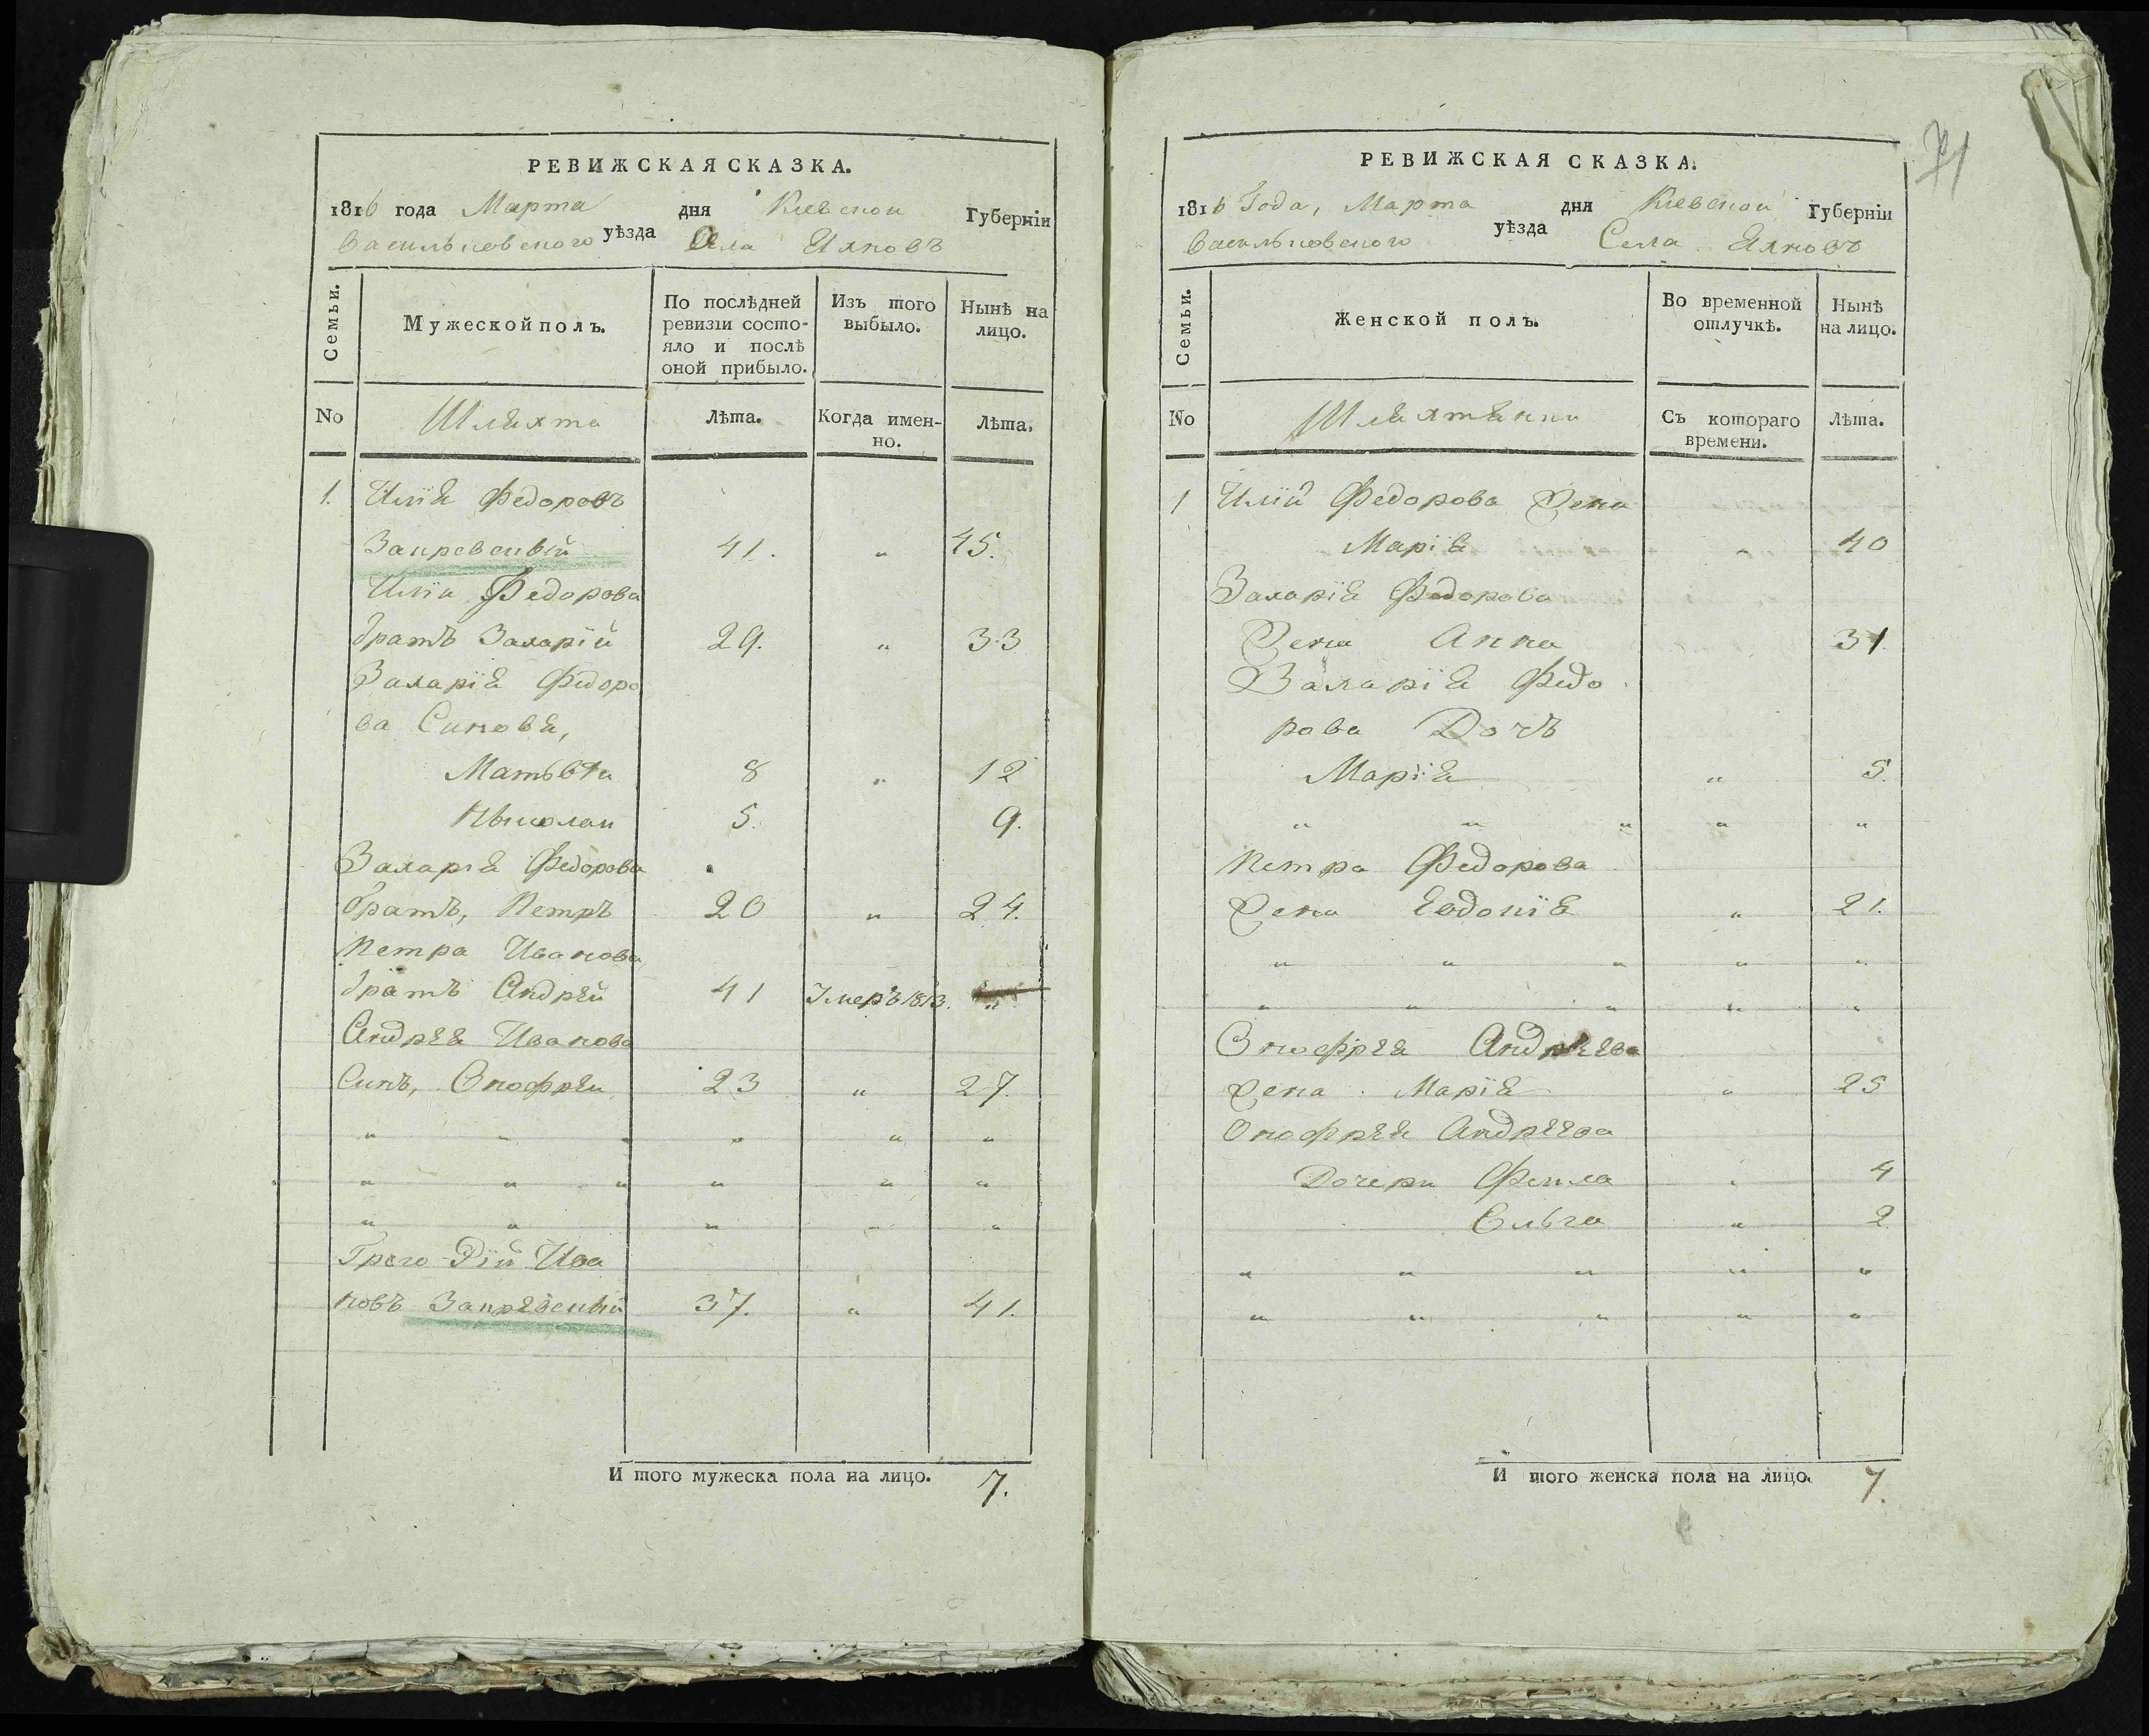 РЕВИЖСКАЯ СКАЗКА.
1816 года Марта дня Киевской Губерніи
Васильковского уѣзда Села Яхновъ
Семьи.
Мужеской полъ.
По послѣдней ревизіи состояло и послѣ оной прибыло.
Изъ того выбыло.
Нынѣ на лицо.
No
Шляхта
Лѣта.
Когда именно.
Лѣта.
1. Илія Федоровъ
Закревскій 41. " 45.
Иліи Федорова
братъ Захарій 29. " 33
Захарія Федоро
ва Синовя,
Матьвѣи 8 " 12
Ныколаи 5. 9.
Захарія Федорова
братъ, Петръ 20 " 24.
Петра Иванова
братъ Андрѣй 41 Умеръ 1813. "
Андрѣя Иванова
Синъ, Онофрѣи 23 " 27.
" " " " " "
" " " " " "
" " " " "
Грего-рій Ива
новъ Закрѣвскій 37. " 41.
И того мужеска пола на лицо. 7.
71
РЕВИЖСКАЯ СКАЗКА.
1816 Года, Марта дня Киевской Губерніи
Васильковского уѣзда Села Яхновъ
Семьи.
Женской полъ.
Во временной отлучкѣ.
Нынѣ на лицо.
No
Шляхтянки
Съ котораго времени.
Лѣта.
1 Иліи Федорова Жена
Марія " 40
Захарія Федорова
Жена Анна 31.
Захарія Федо
рова Дочъ
Марія " 5.
" " " " "
Петра Федорова
Жена Евдокія " 21.
" " " " "
" " " " "
Онофрѣя Андрѣева
Жена Марія " 25
Онофрѣя Андрѣева
Дочери Фекла " 4
Ольга " 2
" " " " "
" " " " "
И того женска пола на лицо. 7.